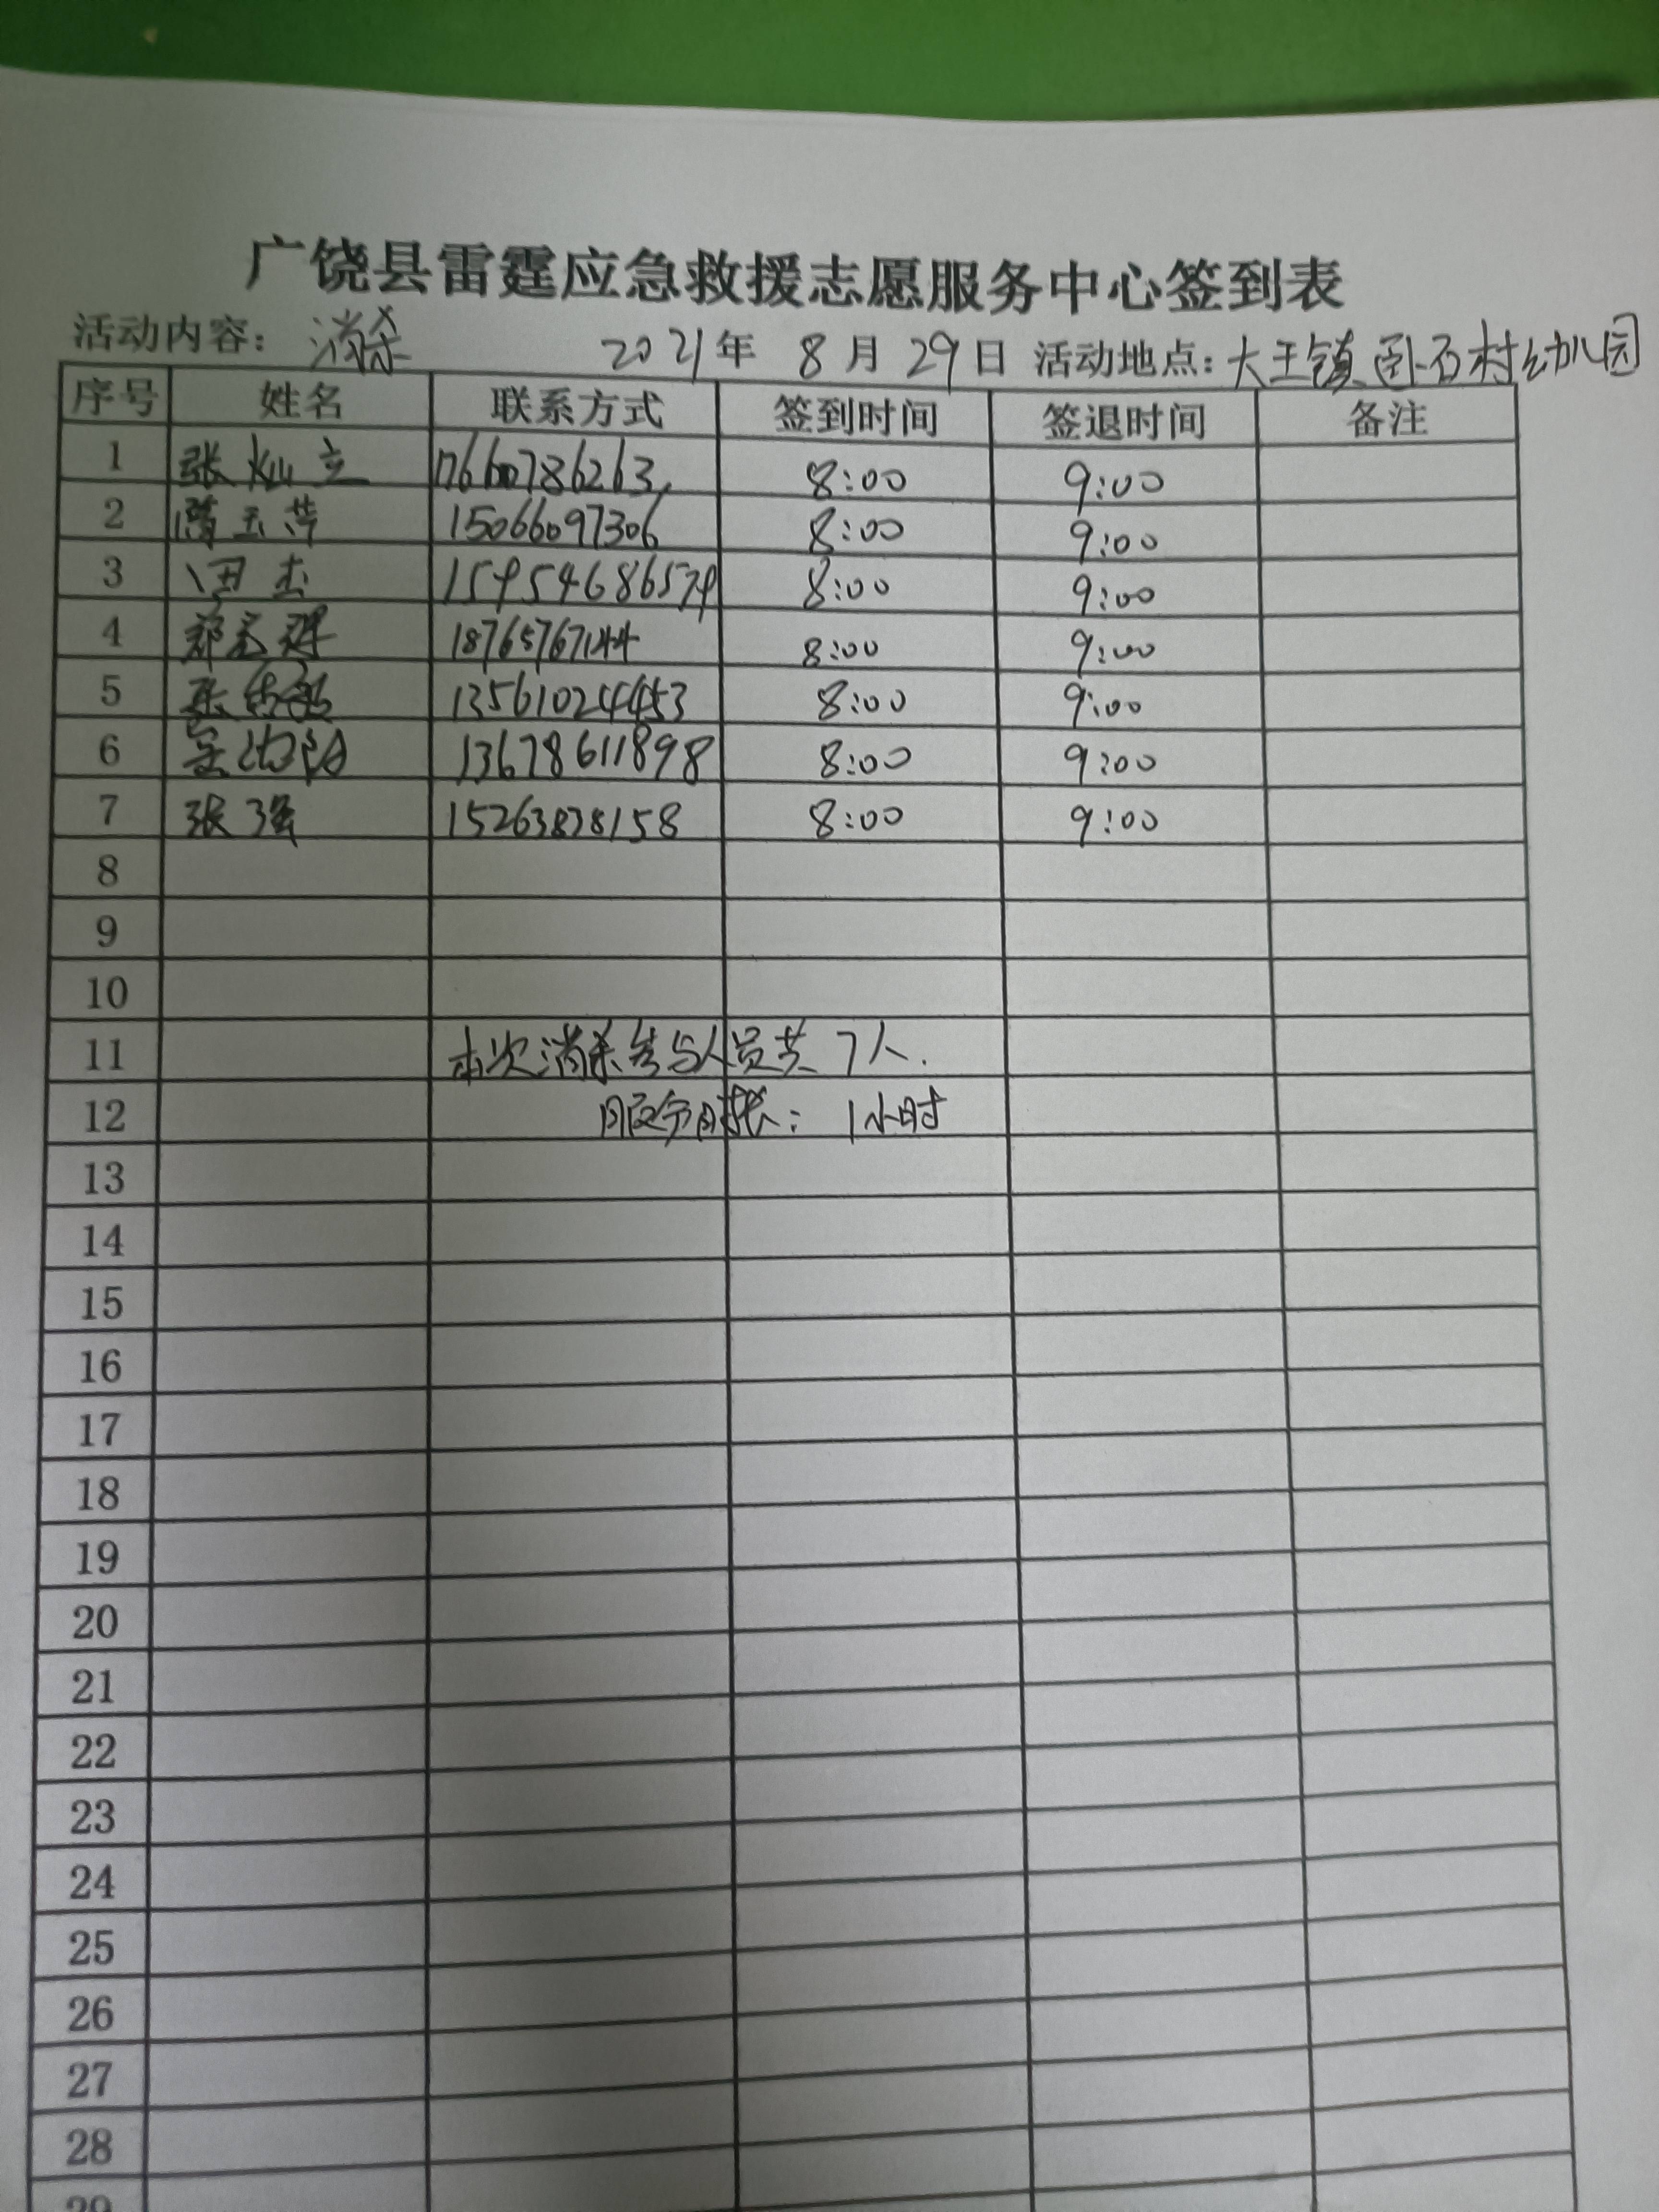 广饶县雷霆应急救援志愿服务中心签到表
活动内容：消杀 2021年 8月29日 活动地点：大王镇 卧石村幼儿园
序号 姓名 联系方式 签到时间 签退时间 备注
1 张灿立 17660786263 8:00 9:00
2 隋玉萍 15066097306 8:00 9:00
3 田杰 8:00 9:00
4 18765767144 8:00 9:00
5 13561024453 8:00 9:00
6 13678611898 8:00 9:00
7 张强 15263838158 8:00 9:00
8
9
10
11 本次消杀参与人员共7人.
12 服务时长：1小时
13
14
15
16
17
18
19
20
21
22
23
24
25
26
27
28
29